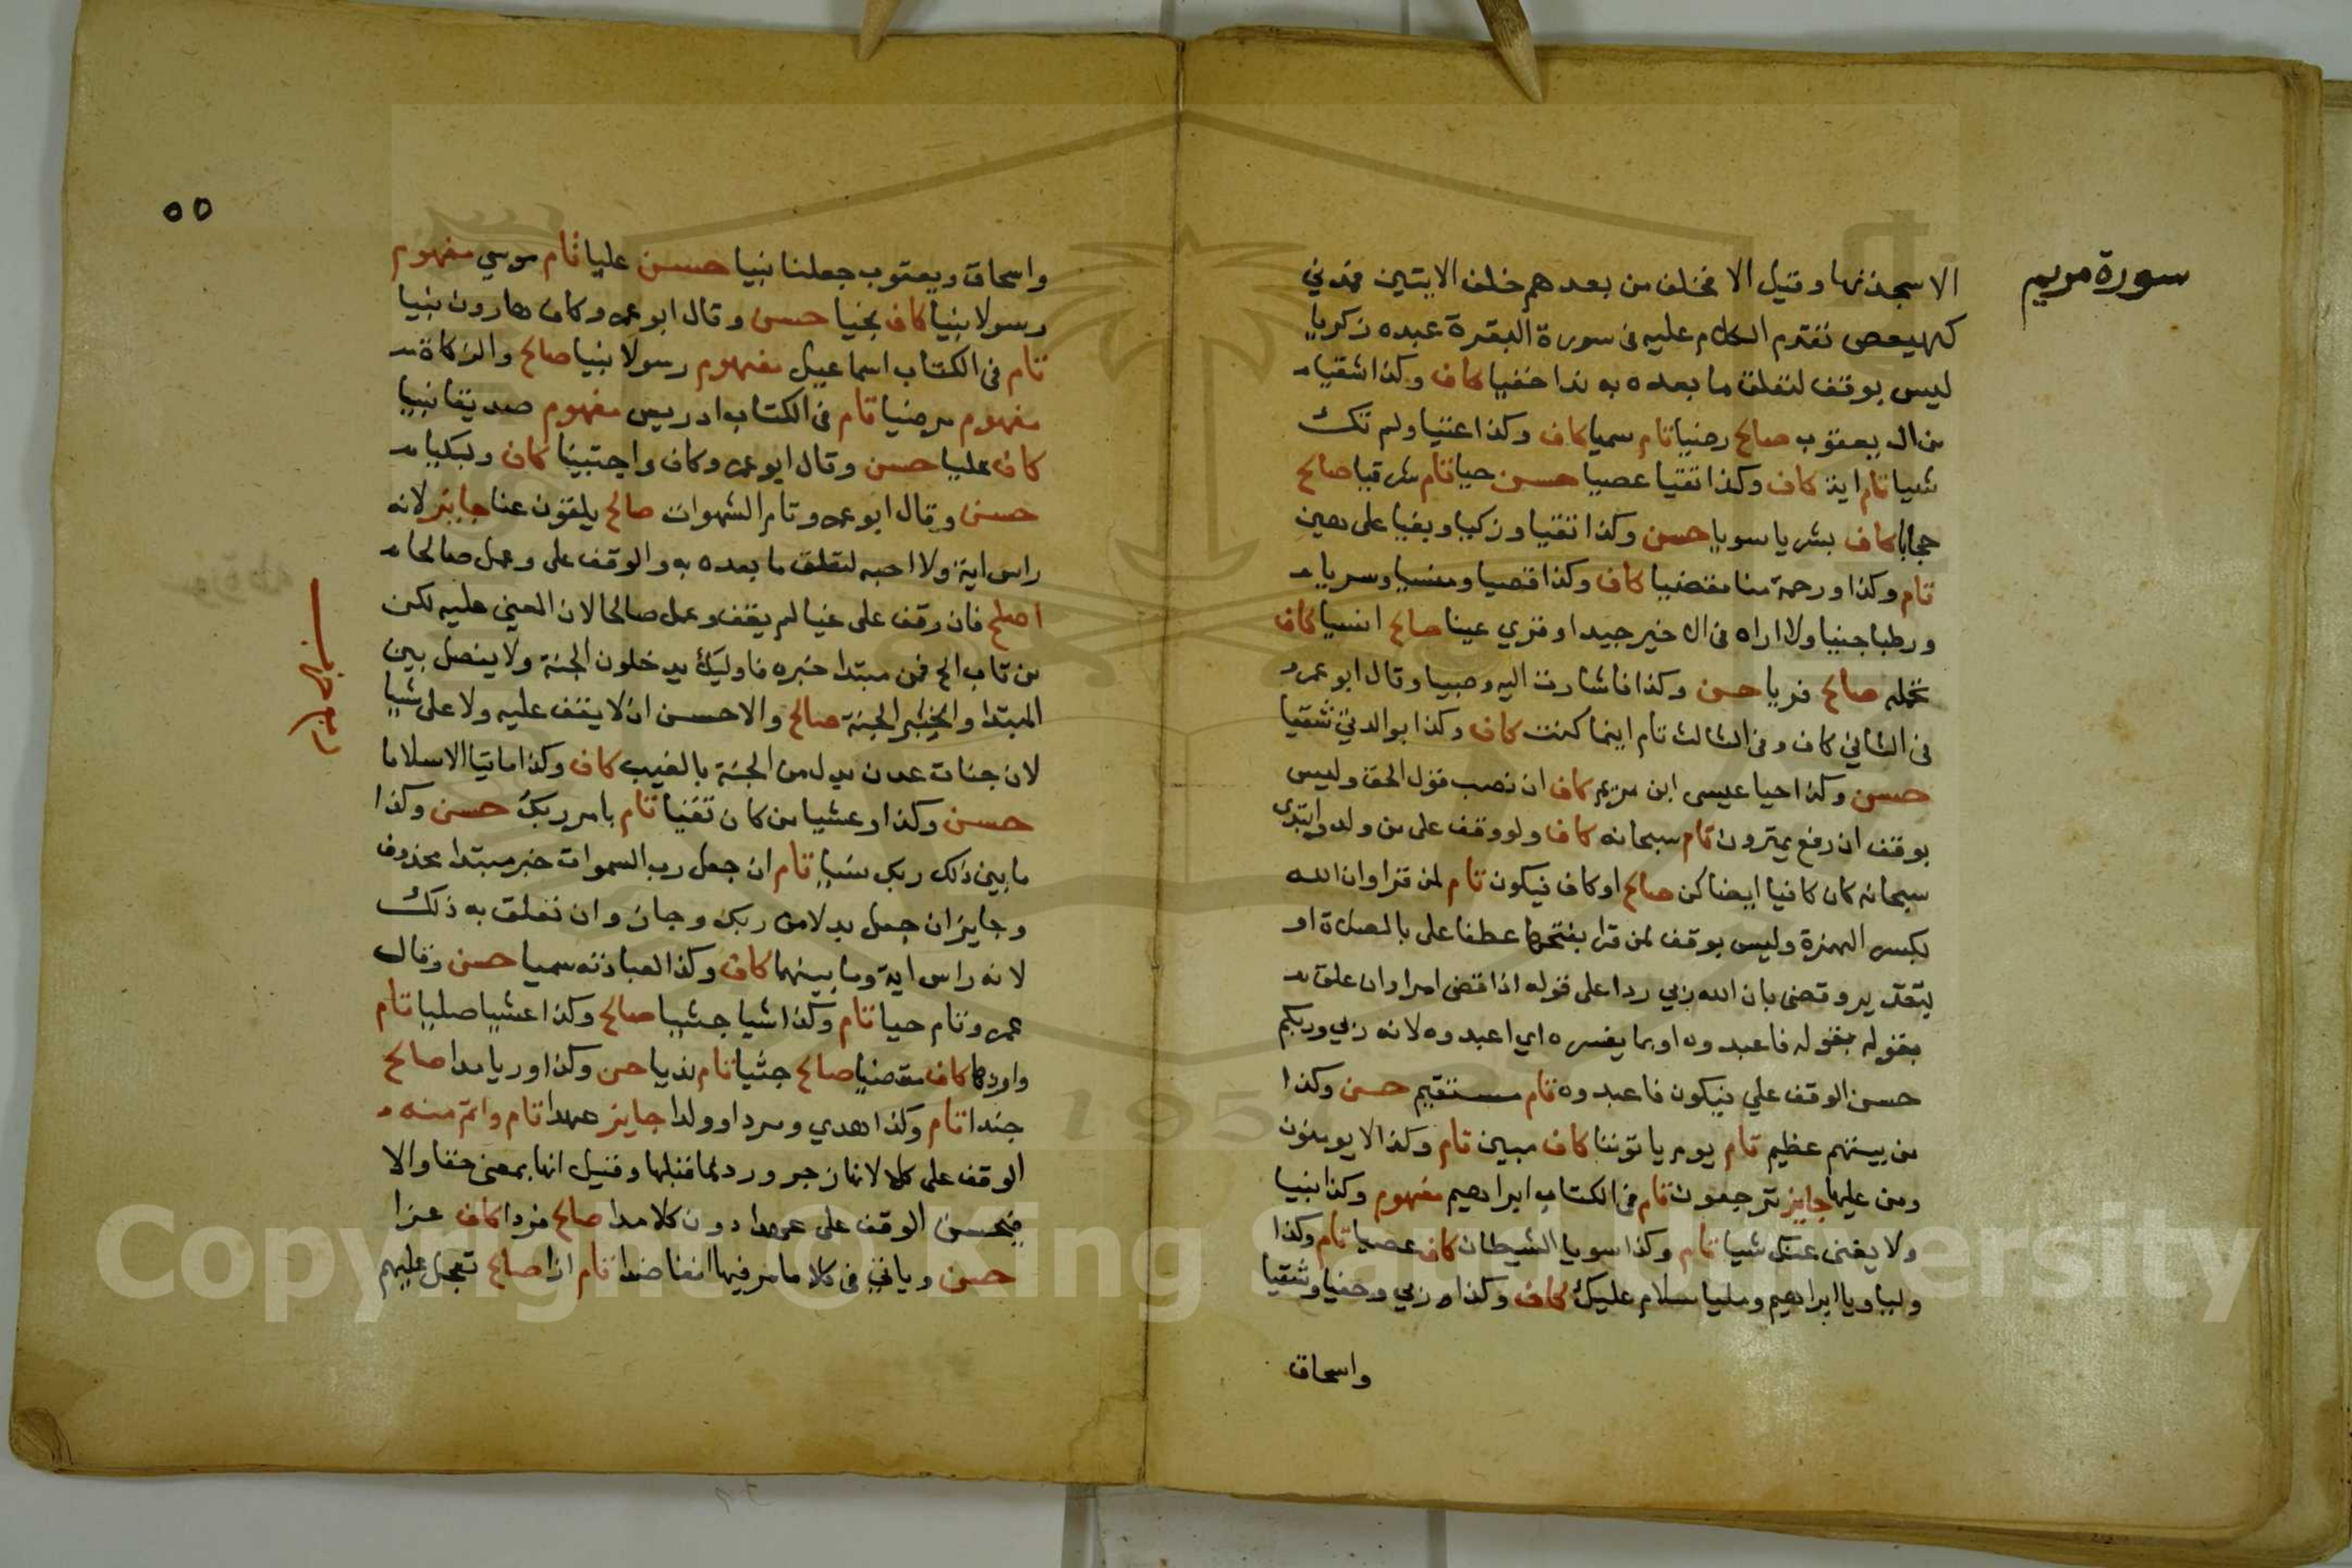 سورة مريم
الاسجدتها وقيل الا فخلف من بعدهم خلف الايتين فمدني
كهيعص تقدم الكلام عليه في سورة البقرة عبده زكريا
ليس بوقف لتعلق ما بعده به ندا خفيا كاف وكذا شقيا
من ال يعقوب صالح رضيا تام سميا كاف وكذا عتيا ولم تك
شيا تام اية كاف وكذا تقيا عصيا حسن حيا تام شرقيا صالح
حجابا كاف بشريا سويا حسن وكذا تقيا وزكيا وبغيا على هين
تام وكذا ورحمة منا مقضيا كاف وكذا قصيا ومنسيا وسريا
ورطبا جنيا ولا اراه في ال خير جيدا وقري عينا صالح انسيا كاف
تحمله صالح فريا حسن وكذا فاشارت اليه وصبيا وقال ابو عمرو
في الثاني كاف وفي الثالث تام اينما كنت كاف وكذا بوالدتي شقيا
حسن وكذا حيا عيسى ابن مريم كاف ان نصب قول الحق وليس
بوقف ان رفع يمترون تام سبحانه كاف ولو وقف على من ولد وابتدى
سبحانه كان كافيا ايضا كن صالح او كاف فيكون تام لمن قرا وان الله
بكسر الهمزة وليس بوقف لمن قرا بفتحها عطفا على بالصلاة او
بتقدير وقضى بان الله ربي ردا على قوله اذا قضى امرا وان علق
بقوله بقوله فاعبدوه او بما يفسره اي اعبدوه لانه ربي وربكم
حسن الوقف على فيكون فاعبدوه تام مستقيم حسن وكذا
من بينهم عظيم تام يوم ياتوننا كاف مبين تام وكذا لا يومنون
ومن عليها جايز ترجعون تام في الكتاب ابراهيم مفهوم وكذا نبيا
ولا يغني عنك شيا تام وكذا سويا الشيطان كاف عصيا تام وكذا
وليا ويا ابراهيم ومليا سلام عليك كاف وكذا ربي وحفيا وشقيا
واسحاق
٥٥
واسحاق ويعقوب جعلنا نبيا حسن عليا تام موسي مفهوم
رسولا نبيا كاف نجيا حسن وقال ابو عمرو كاف هارون نبيا
تام في الكتاب اسماعيل مفهوم رسولا نبيا صالح والزكاة
مفهوم مرضيا تام في الكتاب ادريس مفهوم صديقا نبيا
كاف عليا حسن وقال ابو عمرو كاف واجتبينا كاف وبكيا
حسن وقال ابو عمرو تام الشهوات صالح يلقون غيا جايز لانه
راس اية ولا احبه لتعلق ما بعده به والوقف على وعمل صالحا
اصلح فان وقف على غيا لم يقف وعمل صالحا لان المعنى عليه لكن
من تاب الخ فمن مبتدا خبره فاوليك يدخلون الجنة ولا يفصل بين
المبتدا والخبر الجنة صالح والاحسن ان لا يقف عليه ولا على شيا
لان جنات عدن بدل من الجنة بالغيب كاف وكذا ماتيا الا سلاما
حسن وكذا وعشيا من كان تقيا تام بامر ربك حسن وكذا
ما بين ذلك ربك نسيا تام ان جعل رب السموات خبر مبتدا محذوف
وجايز ان جعل بدلا من ربك وجاز وان تعلق به ذلك
لانه راس اية وما بينهما كاف وكذا لعبادته سميا حسن وقال
عمرو تام حيا تام وكذا شيا جثيا صالح وكذا عشيا صليا تام
واردها كاف مقضيا صالح جثيا تام نديا حسن وكذا وريا مدا صالح
جندا تام وكذا هدي ومردا وولدا جايز عهدا تام واتم منه
الوقف على كلا لانها زجر ورد لما قبلها وقيل انها بمعنى حقا والا
فيحسن الوقف على عهدا دون كلا مدا صالح فردا كاف عزا
حسن وياتي في كلا ما مر فيها انفا ضدا تام ازا صالح تعجل عليهم
Copyright © King Saud University
1957